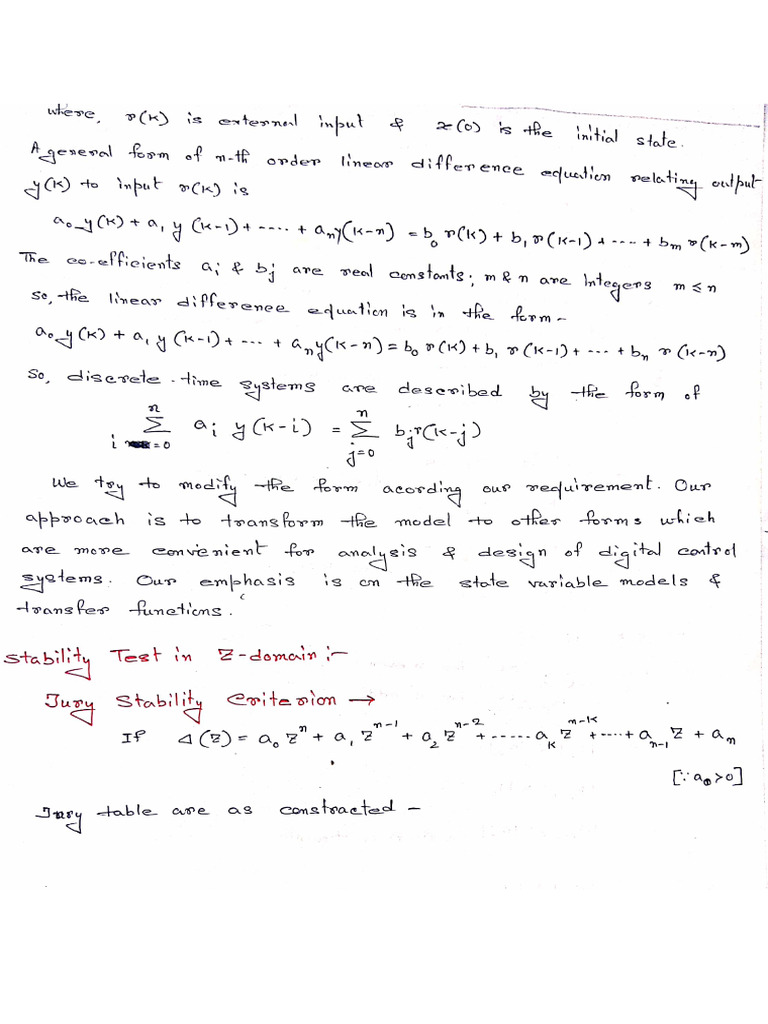 where, r(k) is external input & x(0) is the initial state.
A general form of n-th order linear difference equation relating output
y(k) to input r(k) is
a₀ y(k) + a₁ y(k-1) + ---- + aₙy(k-n) = b₀ r(k) + b₁ r(k-1) + ---- + bₘ r(k-m)
The co-efficients aᵢ & bⱼ are real constants; m & n are integers m ≤ n
so, the linear difference equation is in the form -
a₀ y(k) + a₁ y(k-1) + --- + aₙy(k-n) = b₀ r(k) + b₁ r(k-1) + --- + bₙ r(k-n)
So, discrete-time systems are described by the form of
∑_{i=0}^{n} aᵢ y(k-i) = ∑_{j=0}^{n} bⱼr(k-j)
We try to modify the form acording our requirement. Our
approach is to transform the model to other forms which
are more convenient for analysis & design of digital control
systems. Our emphasis is on the state variable models &
transfer functions.
Stability Test in Z-domain :-
Jury Stability Criterion →
If Δ(Z) = a₀ Zⁿ + a₁ Zⁿ⁻¹ + a₂ Zⁿ⁻² + ----- aₖ Zⁿ⁻ᵏ + ---- + aₙ₋₁ Z + aₙ
[∵ a₀ > 0]
Jury table are as constracted -